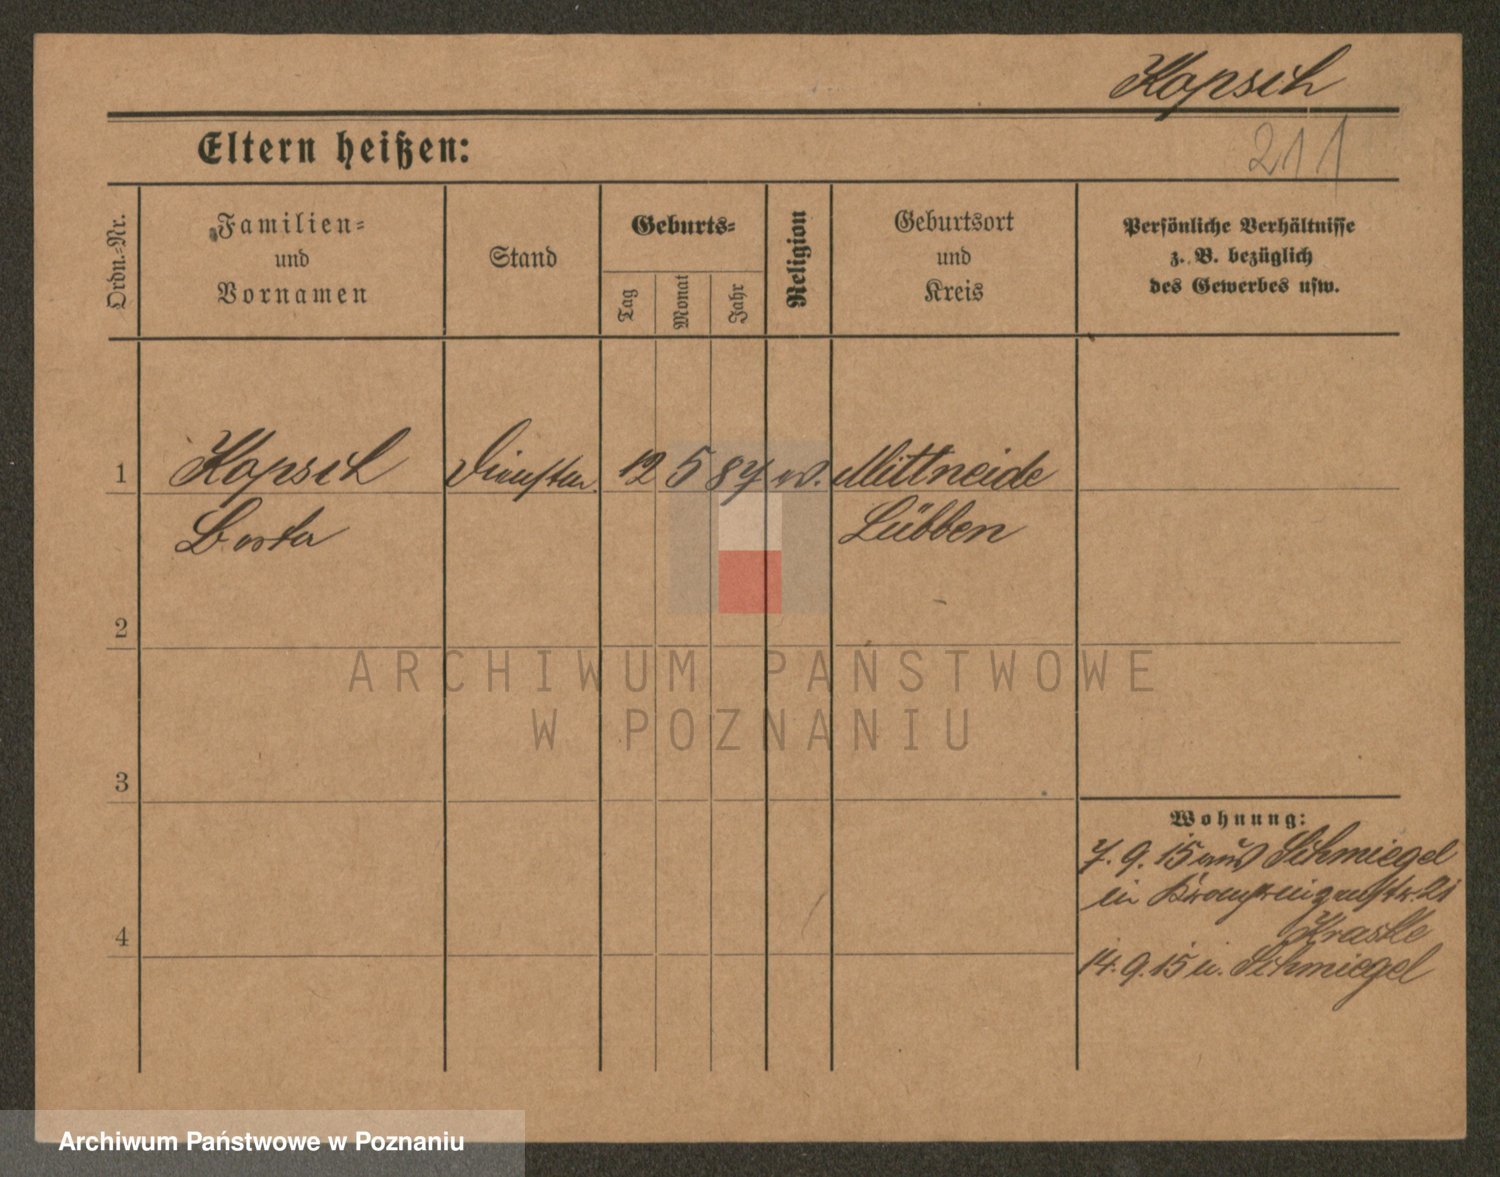 Kopsch
211
Eltern heißen:
Ordn.-Nr.
Familien-
und
Vornamen
Stand
Geburts-
Tag
Monat
Jahr
Religion
Geburtsort
und
Kreis
Persönliche Verhältnisse
z. B. bezüglich
des Gewerbes usw.
1
Kopsch
12 5 87 ev. Mittneide
Lübben
2
ARCHIWUM PAŃSTWOWE
W POZNANIU
3
Wohnung:
7.9.15 aus Schmiegel
in Kronprinzenstr. 21
14.9.15 n. Schmiegel
4
Archiwum Państwowe w Poznaniu